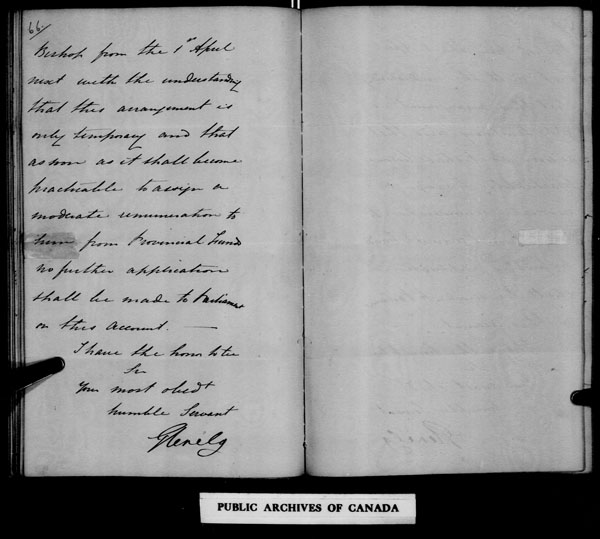 66/
Bishop from the 1st April
next with the understanding
that this arrangement is
only temporary and that
as soon as it shall become
practicable to assign a
moderate remuneration to
him from Provincial Funds
no further application
shall be made to Parliament
on this account.
I have the honor to be
Sir
Your most obedt
humble Servant
Glenelg
PUBLIC ARCHIVES OF CANADA